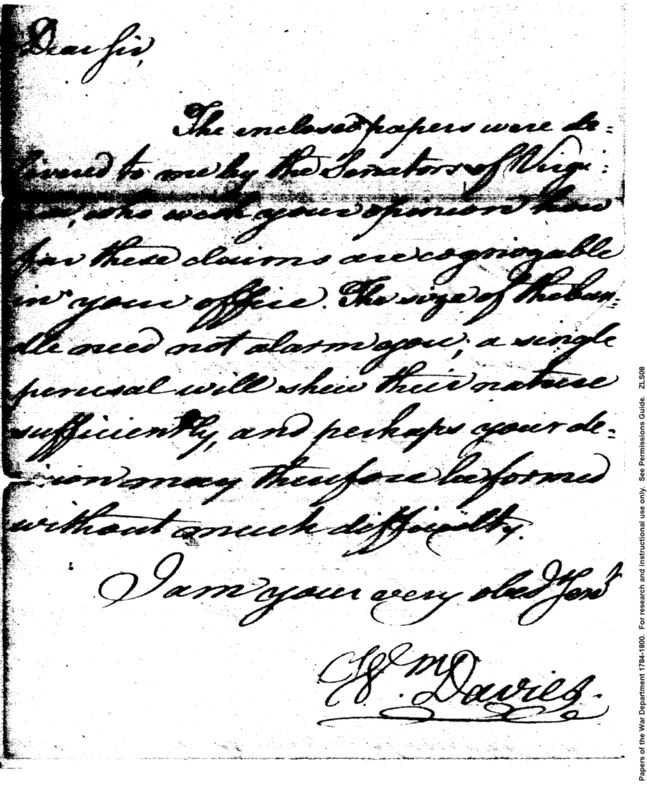 Dear Sir,
The enclosed papers were de=
livered to me by the Senators of Virgi=
nia, who wish your opinion how
far these claims are cognizable
in your office. The size of the bun=
dle need not alarm you; a single
perusal will shew their nature
sufficiently, and perhaps your de=
cision may therefore be formed
without much difficulty.
I am your very obed.t Serv.t
W.m Davies.
Papers of the War Department 1784-1800. For research and instructional use only. See Permissions Guide. ZLS08